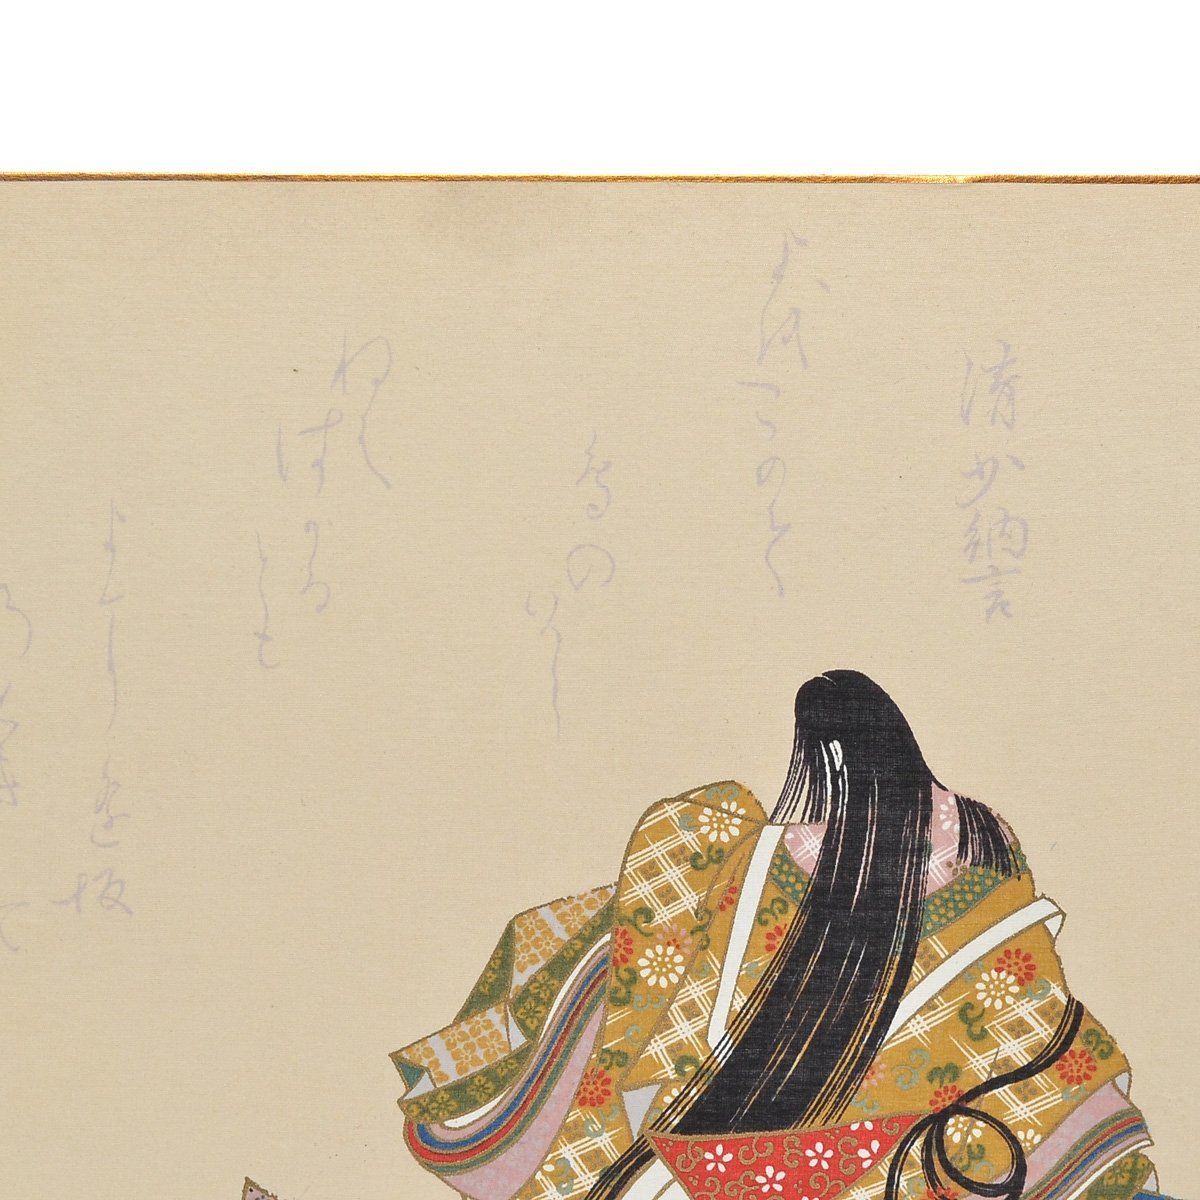 清少納言
よをこめて
鳥のそら
ねは
はかる
とも
よに逢坂
の